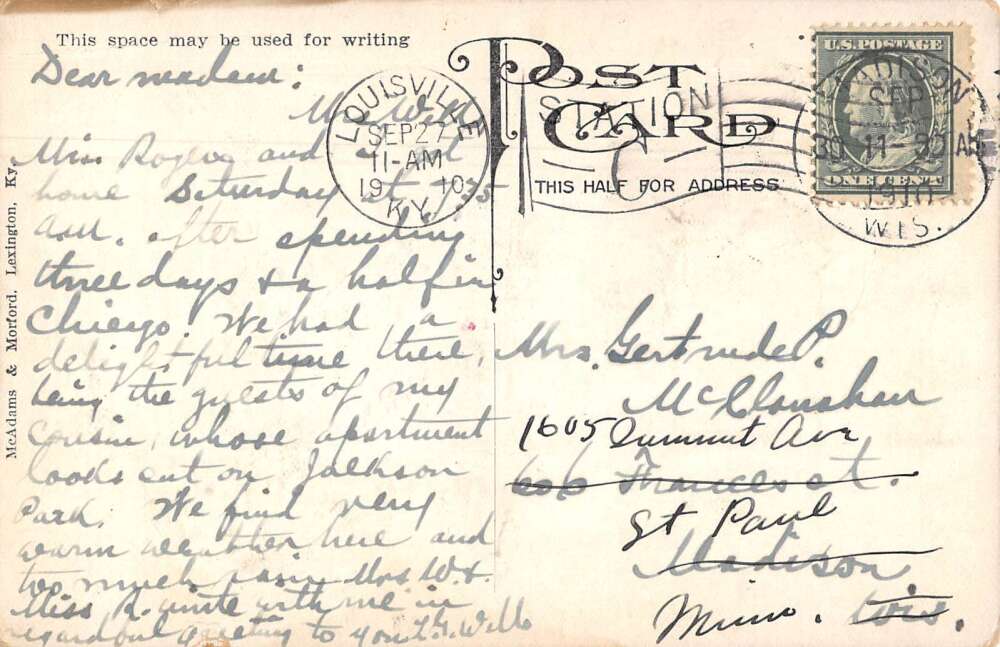 This space may be used for writing
POST CARD
THIS HALF FOR ADDRESS
McAdams & Morford, Lexington, Ky.
LOUISVILLE
SEP 27
11-AM
1910
KY.
STATION
U.S. POSTAGE
ONE CENT
MADISON
SEP
30 11-30 AM
1910
WIS.
Dear madam:
Mrs. Wills
Miss Rogers and
home Saturday at 7:35
a.m. after spending
three days & a half in
Chicago. We had a
delightful time there,
being the guests of my
cousin, whose apartment
looks out on Jackson
Park. We find very
warm weather here and
too much rain. Mrs W. &
Miss R. unite with me in
regard and greeting to you. Wills
Mrs. Gertrude P.
McClanahan
1605 Summit Ave
606 Frances st.
St Paul
Madison
Minn. Wis.